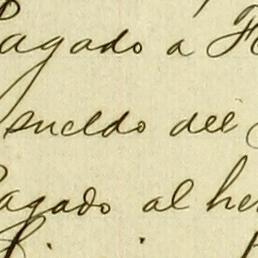 Pagado a
sueldo del
Pagado al